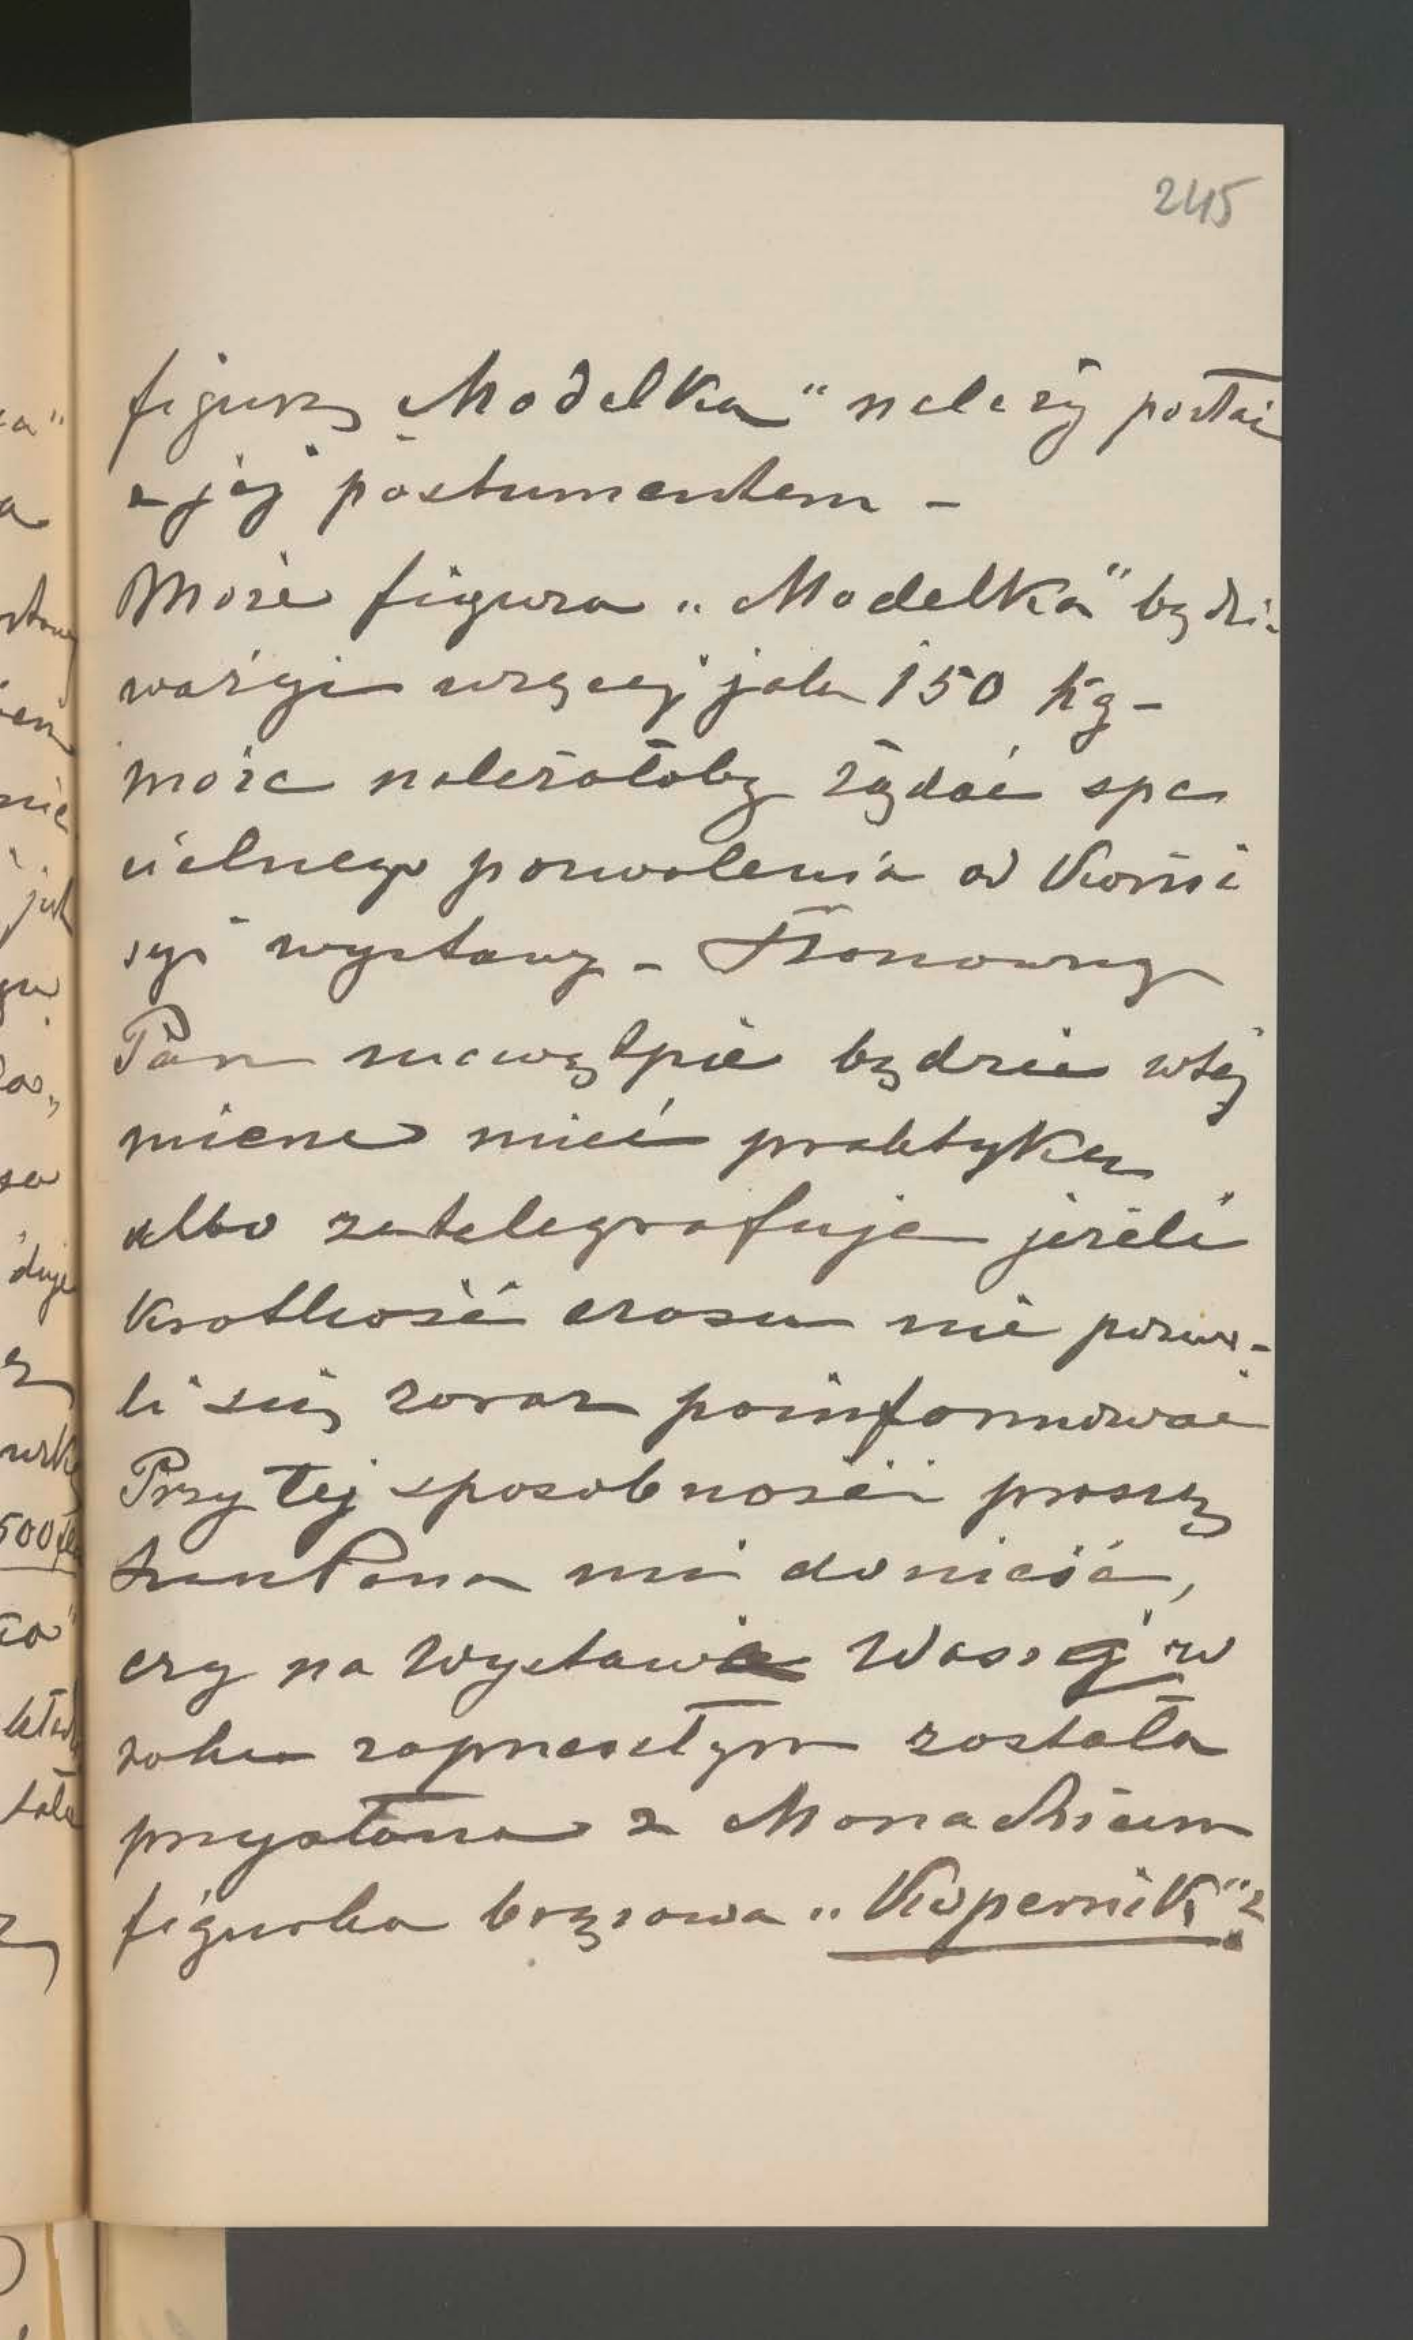 245
figurę „Modelka" należy posłać
z jej postumentem –
Może figura „Modelka" będzi-
ważyć więcej jak 150 kg –
może należałoby żądać spe
cielnego pozwolenia od Komi
syi wystawy – Szanowny
Pan niewątpię będzie w tej
mierze mieć praktykę
albo zatelegrafuje jeżeli
krotkość czasu nie pozwo-
li się zaraz poinformować
Przy tej sposobności proszę
Pana mi donieść,
czy na Wystawie Waszej w
roku zaprzeszłym została
przysłana z Monachium
figurka bronzowa „Kopernik"?